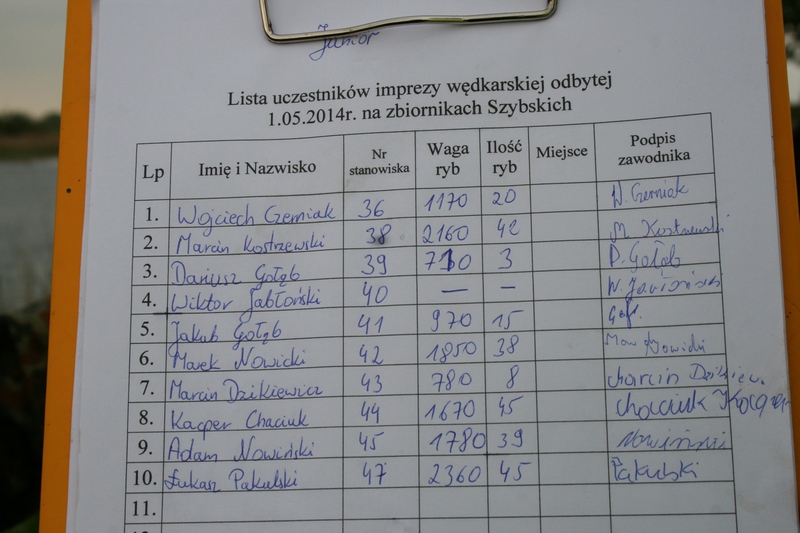 Junior
Lista uczestników imprezy wędkarskiej odbytej
1.05.2014r. na zbiornikach Szybskich
Lp Imię i Nazwisko Nr stanowiska Waga ryb Ilość ryb Miejsce Podpis zawodnika
1. Wojciech Czerniak 36 1170 20 W. Czerniak
2. Marcin Kostrzewski 38 2160 42 M. Kostrzewski
3. Dariusz Gołąb 39 710 3 D. Gołąb
4. Wiktor Jabłoński 40 — — W. Jabłoński
5. Jakub Gołąb 41 970 15
6. Marek Nowicki 42 1850 38 Nowicki
7. Marcin Dzikiewicz 43 780 8
8. Kacper Chaciuk 44 1670 45 Chaciuk Kacper
9. Adam Nowiński 45 1780 39 Nowiński
10. Łukasz Pakulski 47 2360 45 Pakulski
11.